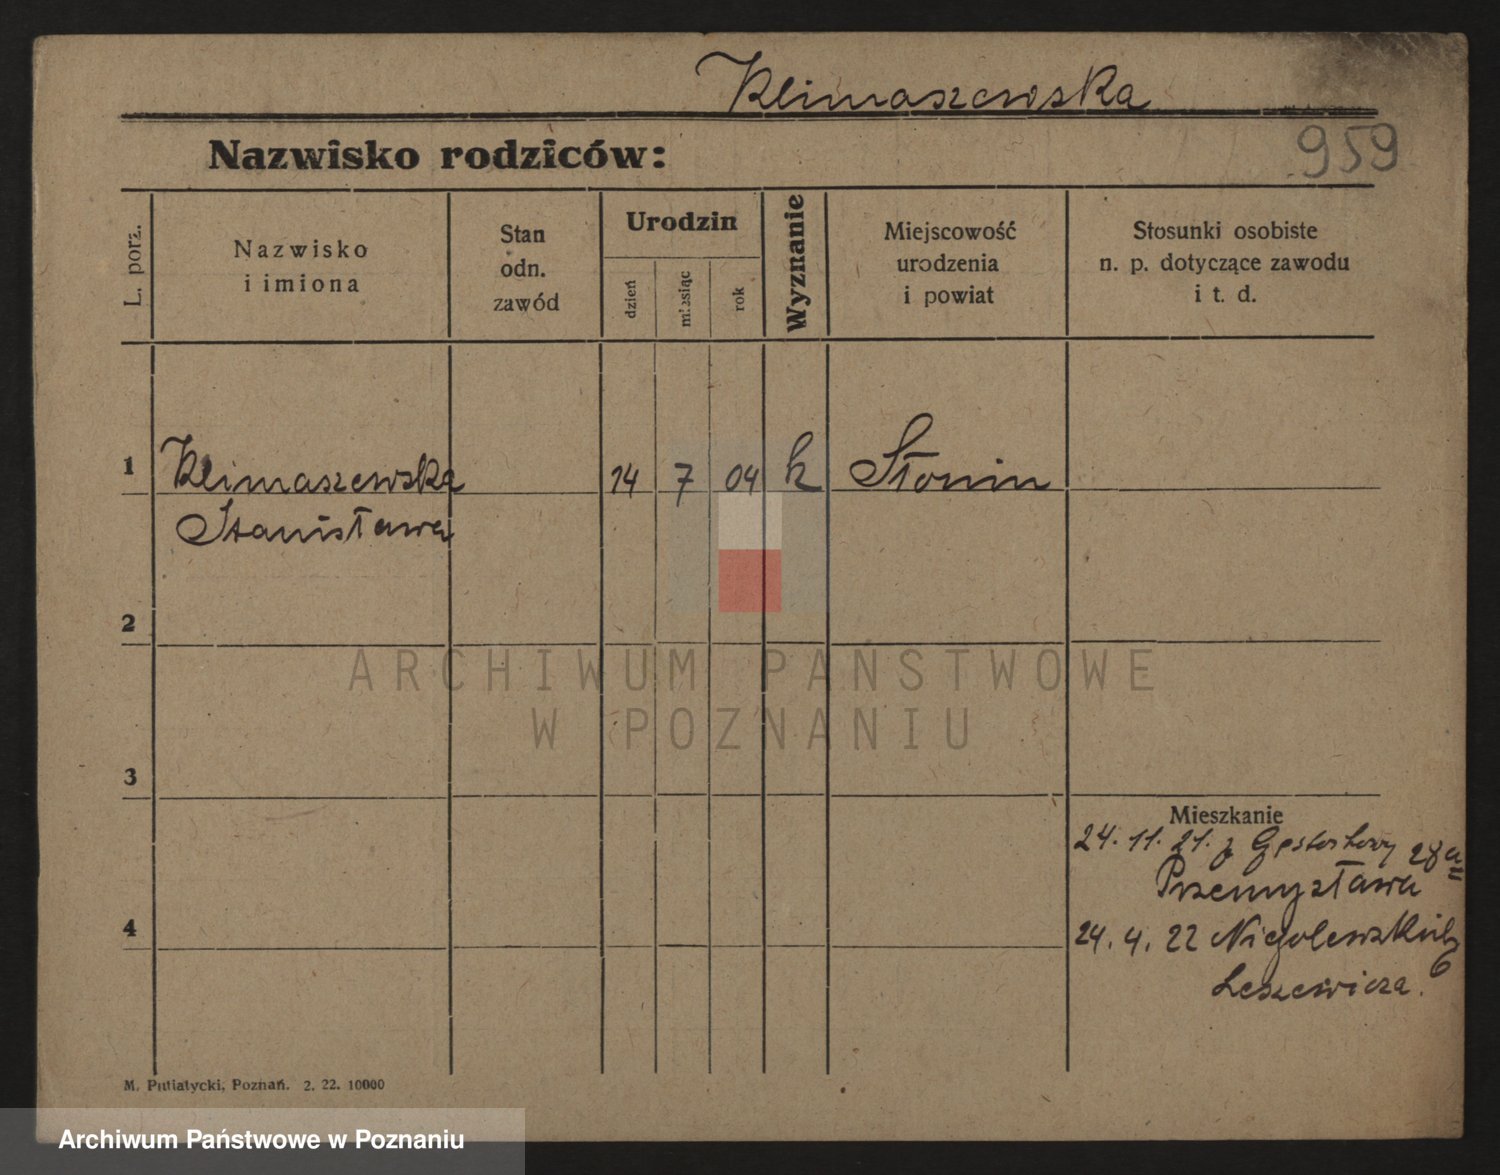 Klimaszewska
959
Nazwisko rodziców:
L. porz.
Nazwisko
i imiona
Stan
odn.
zawód
Urodzin
dzień
miesiąc
rok
Wyznanie
Miejscowość
urodzenia
i powiat
Stosunki osobiste
n. p. dotyczące zawodu
i t. d.
1
Klimaszewska 14 7 04 k Słonin
Stanisława
2
ARCHIWUM PAŃSTWOWE
W POZNANIU
3
Mieszkanie
24. 11. 21. z 28a
Przemysława
4
24. 4. 22 Niegolewskich 6
Leszewicza.
M. Putiatycki, Poznań. 2. 22. 10000
Archiwum Państwowe w Poznaniu